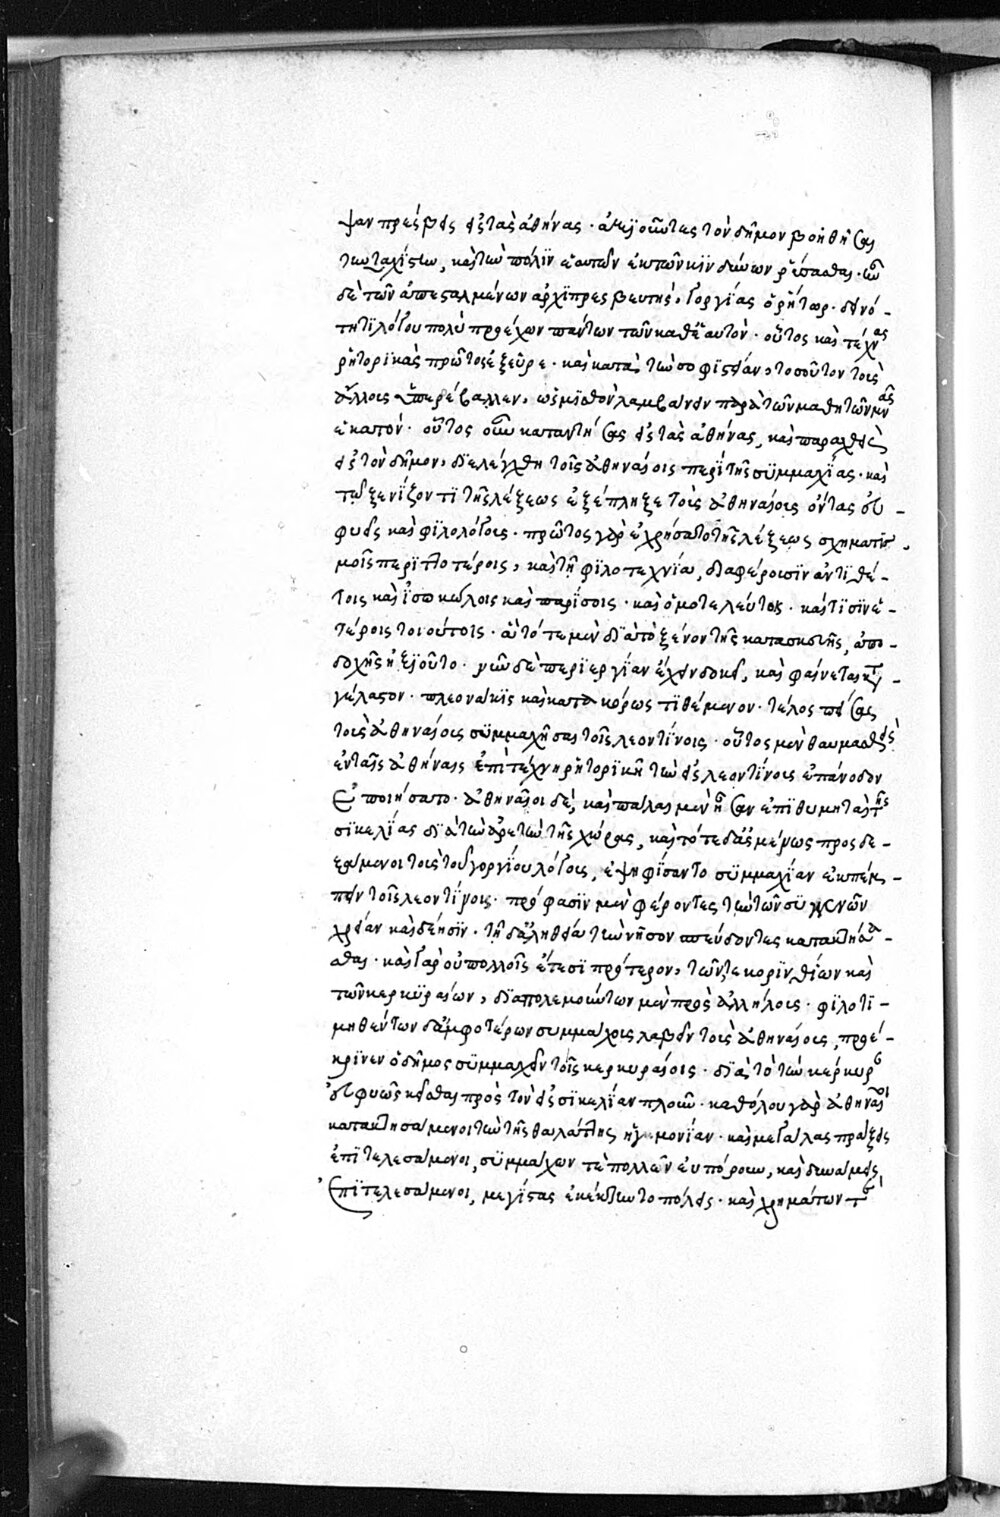 ψαν πρέσβεις εἰς τὰς ἀθήνας· ἀξιοῦντες τὸν δῆμον βοηθῆσαι
τὴν ταχίστην, καὶ τὴν πόλιν ἑαυτῶν ἐκ τῶν κινδύνων ῥύσασθαι· ἦν
δὲ τῶν ἀπεσταλμένων ἀρχιπρεσβευτὴς, γοργίας ὁ ῥήτωρ· δεινό-
τητι λόγου πολὺ προέχων πάντων τῶν καθ' ἑαυτόν· οὗτος καὶ τέχνας
ῥητορικὰς πρῶτος ἐξεῦρε· καὶ κατὰ τὴν σοφιστείαν, τοσοῦτον τοὺς
ἄλλους ὑπερέβαλλεν, ὡς μισθὸν λαμβάνειν παρὰ τῶν μαθητῶν μνᾶς
ἑκατόν· οὗτος οὖν καταντήσας εἰς τὰς ἀθήνας, καὶ παραχθεὶς
εἰς τὸν δῆμον, διελέγχθη τοῖς ἀθηναίοις περὶ τῆς συμμαχίας· καὶ
τῷ ξενίζοντι τῆς λέξεως ἐξέπληξε τοὺς ἀθηναίους ὄντας εὐ-
φυεῖς καὶ φιλολόγους· πρῶτος γὰρ ἐχρήσατο τῆς λέξεως σχηματισ-
μοῖς περιττοτέροις, καὶ τῇ φιλοτεχνίᾳ, διαφέρουσιν ἀντιθέ-
τοις καὶ ἰσοκώλοις καὶ παρίσοις· καὶ ὁμοτελεύτοις· καί τισιν ἑ-
τέροις τοιούτοις· ἃ τότε μὲν διὰ τὸ ξένον τῆς κατασκευῆς, ἀπο-
δοχῆς ἠξιοῦτο· νῦν δὲ περιεργίαν ἔχειν δοκεῖ, καὶ φαίνεται κατα-
γέλαστον· πλεονάκις καὶ κατακόρως τιθέμενον· τέλος πείσας
τοὺς ἀθηναίους συμμαχῆσαι τοῖς λεοντίνοις· οὗτος μὲν θαυμασθεὶς
ἐν ταῖς ἀθήναις ἐπὶ τέχνῃ ῥητορικῇ τὴν εἰς λεοντίνους ἐπάνοδον
ἐποιήσατο· ἀθηναῖοι δὲ, καὶ πάλαι μὲν ἦσαν ἐπιθυμηταὶ τῆς
σικελίας διὰ τὴν ἀρετὴν τῆς χώρας, καὶ τότε δ' ἀσμένως προσδε-
ξάμενοι τοὺς τοῦ γοργίου λόγους, ἐψηφίσαντο συμμαχίαν ἐκπέμ-
πειν τοῖς λεοντίνοις· πρόφασιν μὲν φέροντες τὴν τῶν συγγενῶν
χρείαν καὶ δέησιν· τῇ δ' ἀληθείᾳ τὴν νῆσον σπεύδοντες κατακτήσα-
σθαι· καὶ γὰρ οὐ πολλοῖς ἔτεσι πρότερον, τῶν τε κορινθίων καὶ
τῶν κερκυραίων, διαπολεμούντων μὲν πρὸς ἀλλήλους· φιλοτι-
μηθέντων δ' ἀμφοτέρων συμμάχους λαβεῖν τοὺς ἀθηναίους, προέ-
κρινεν ὁ δῆμος συμμαχεῖν τοῖς κερκυραίοις· διὰ τὸ τὴν κέρκυραν
εὐφυῶς κεῖσθαι πρὸς τὸν εἰς σικελίαν πλοῦν· καθόλου γὰρ ἀθηναῖοι
κατακτησάμενοι τὴν τῆς θαλάττης ἡγεμονίαν· καὶ μεγάλας πράξεις
ἐπιτελεσάμενοι, συμμάχων τε πολλῶν εὐπόρουν, καὶ δυνάμεις
ἐπιτελεσάμενοι, μεγίστας ἐκέκτηντο πόλεις· καὶ χρημάτων τε